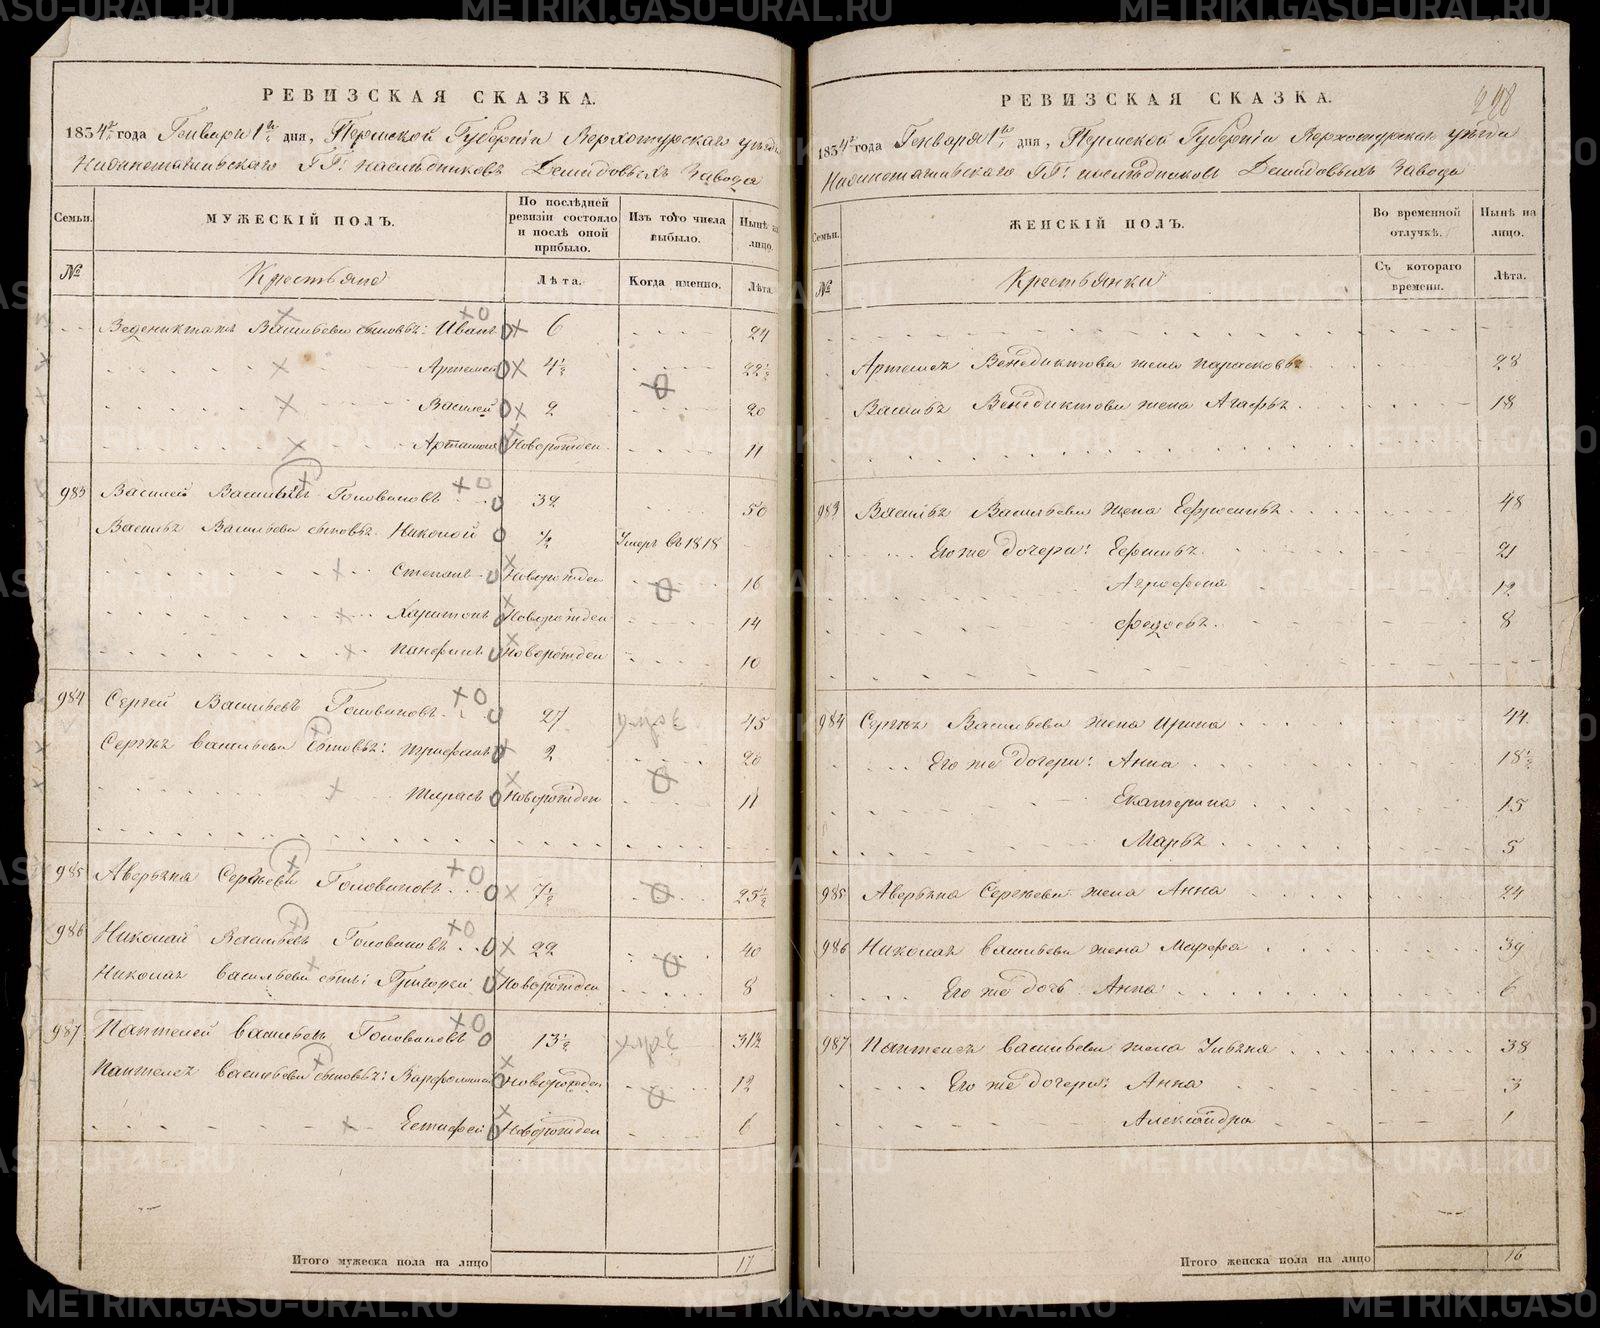 РЕВИЗСКАЯ СКАЗКА.
1834го года Генваря 1го дня, Пермской Губернiи Верхотурскаго уѣзда
Нижнетагильскаго ГГ: наслѣдниковъ Демидовыхъ Завода
Семьи. МУЖЕСКIЙ ПОЛЪ. По послѣдней ревизiи состояло и послѣ оной прибыло. Изъ того числа выбыло. Нынѣ на лицо.
№ Крестьяне Лѣта. Когда именно. Лѣта.
Веденикта Васильева сыновья: Иванъ 6 24
Артемей 4½ 22½
Василей 2 20
Артамонъ Новорожден 11
983 Василей Васильевъ Головановъ 32 50
Василья Васильева сыновья Николай ½ Умеръ въ 1818
Степанъ Новорожден 16
Харитонъ Новорожден 14
Панфилъ Новорожден 10
984 Сергей Васильевъ Головановъ 27 45
Сергея Васильева сыновья: Трифанъ 2 20
Тарасъ Новорожден 11
985 Аверьяна Сергѣева Головановъ 7½ 25½
986 Николай Васильевъ Головановъ 22 40
Николая Васильева сынъ: Григорей Новорожден 8
987 Пантелей Васильевъ Головановъ 13½ 31½
Пантелея Васильева сыновья: Варфоломей Новорожден 12
Естифей Новорожден 6
Итого мужеска пола на лицо 17
298
РЕВИЗСКАЯ СКАЗКА.
1834го года Генваря 1го дня, Пермской Губернiи Верхотурскаго уѣзда
Нижнетагильскаго ГГ: наслѣдниковъ Демидовыхъ Завода
Семьи. ЖЕНСКIЙ ПОЛЪ. Во временной отлучкѣ. Нынѣ на лицо.
№ Крестьянки Съ котораго времени. Лѣта.
Артемея Венедиктова жена Парасковья 28
Василья Венедиктова жена Агафья 18
983 Василья Васильева жена Ефросинья 48
Его же дочери: Ефимья 21
Агрофена 12
Федосья 8
984 Сергея Васильева жена Ирина 44
Его же дочери: Анна 18½
Екатерина 15
Марья 5
985 Аверьяна Сергеева жена Анна 24
986 Николая Васильева жена Марфа 39
Его же дочь Анна 6
987 Пантелея Васильева жена Ульяна 38
Его же дочери: Анна 3
Александра 1
Итого женска пола на лицо 16
METRIKI.GASO-URAL.RU